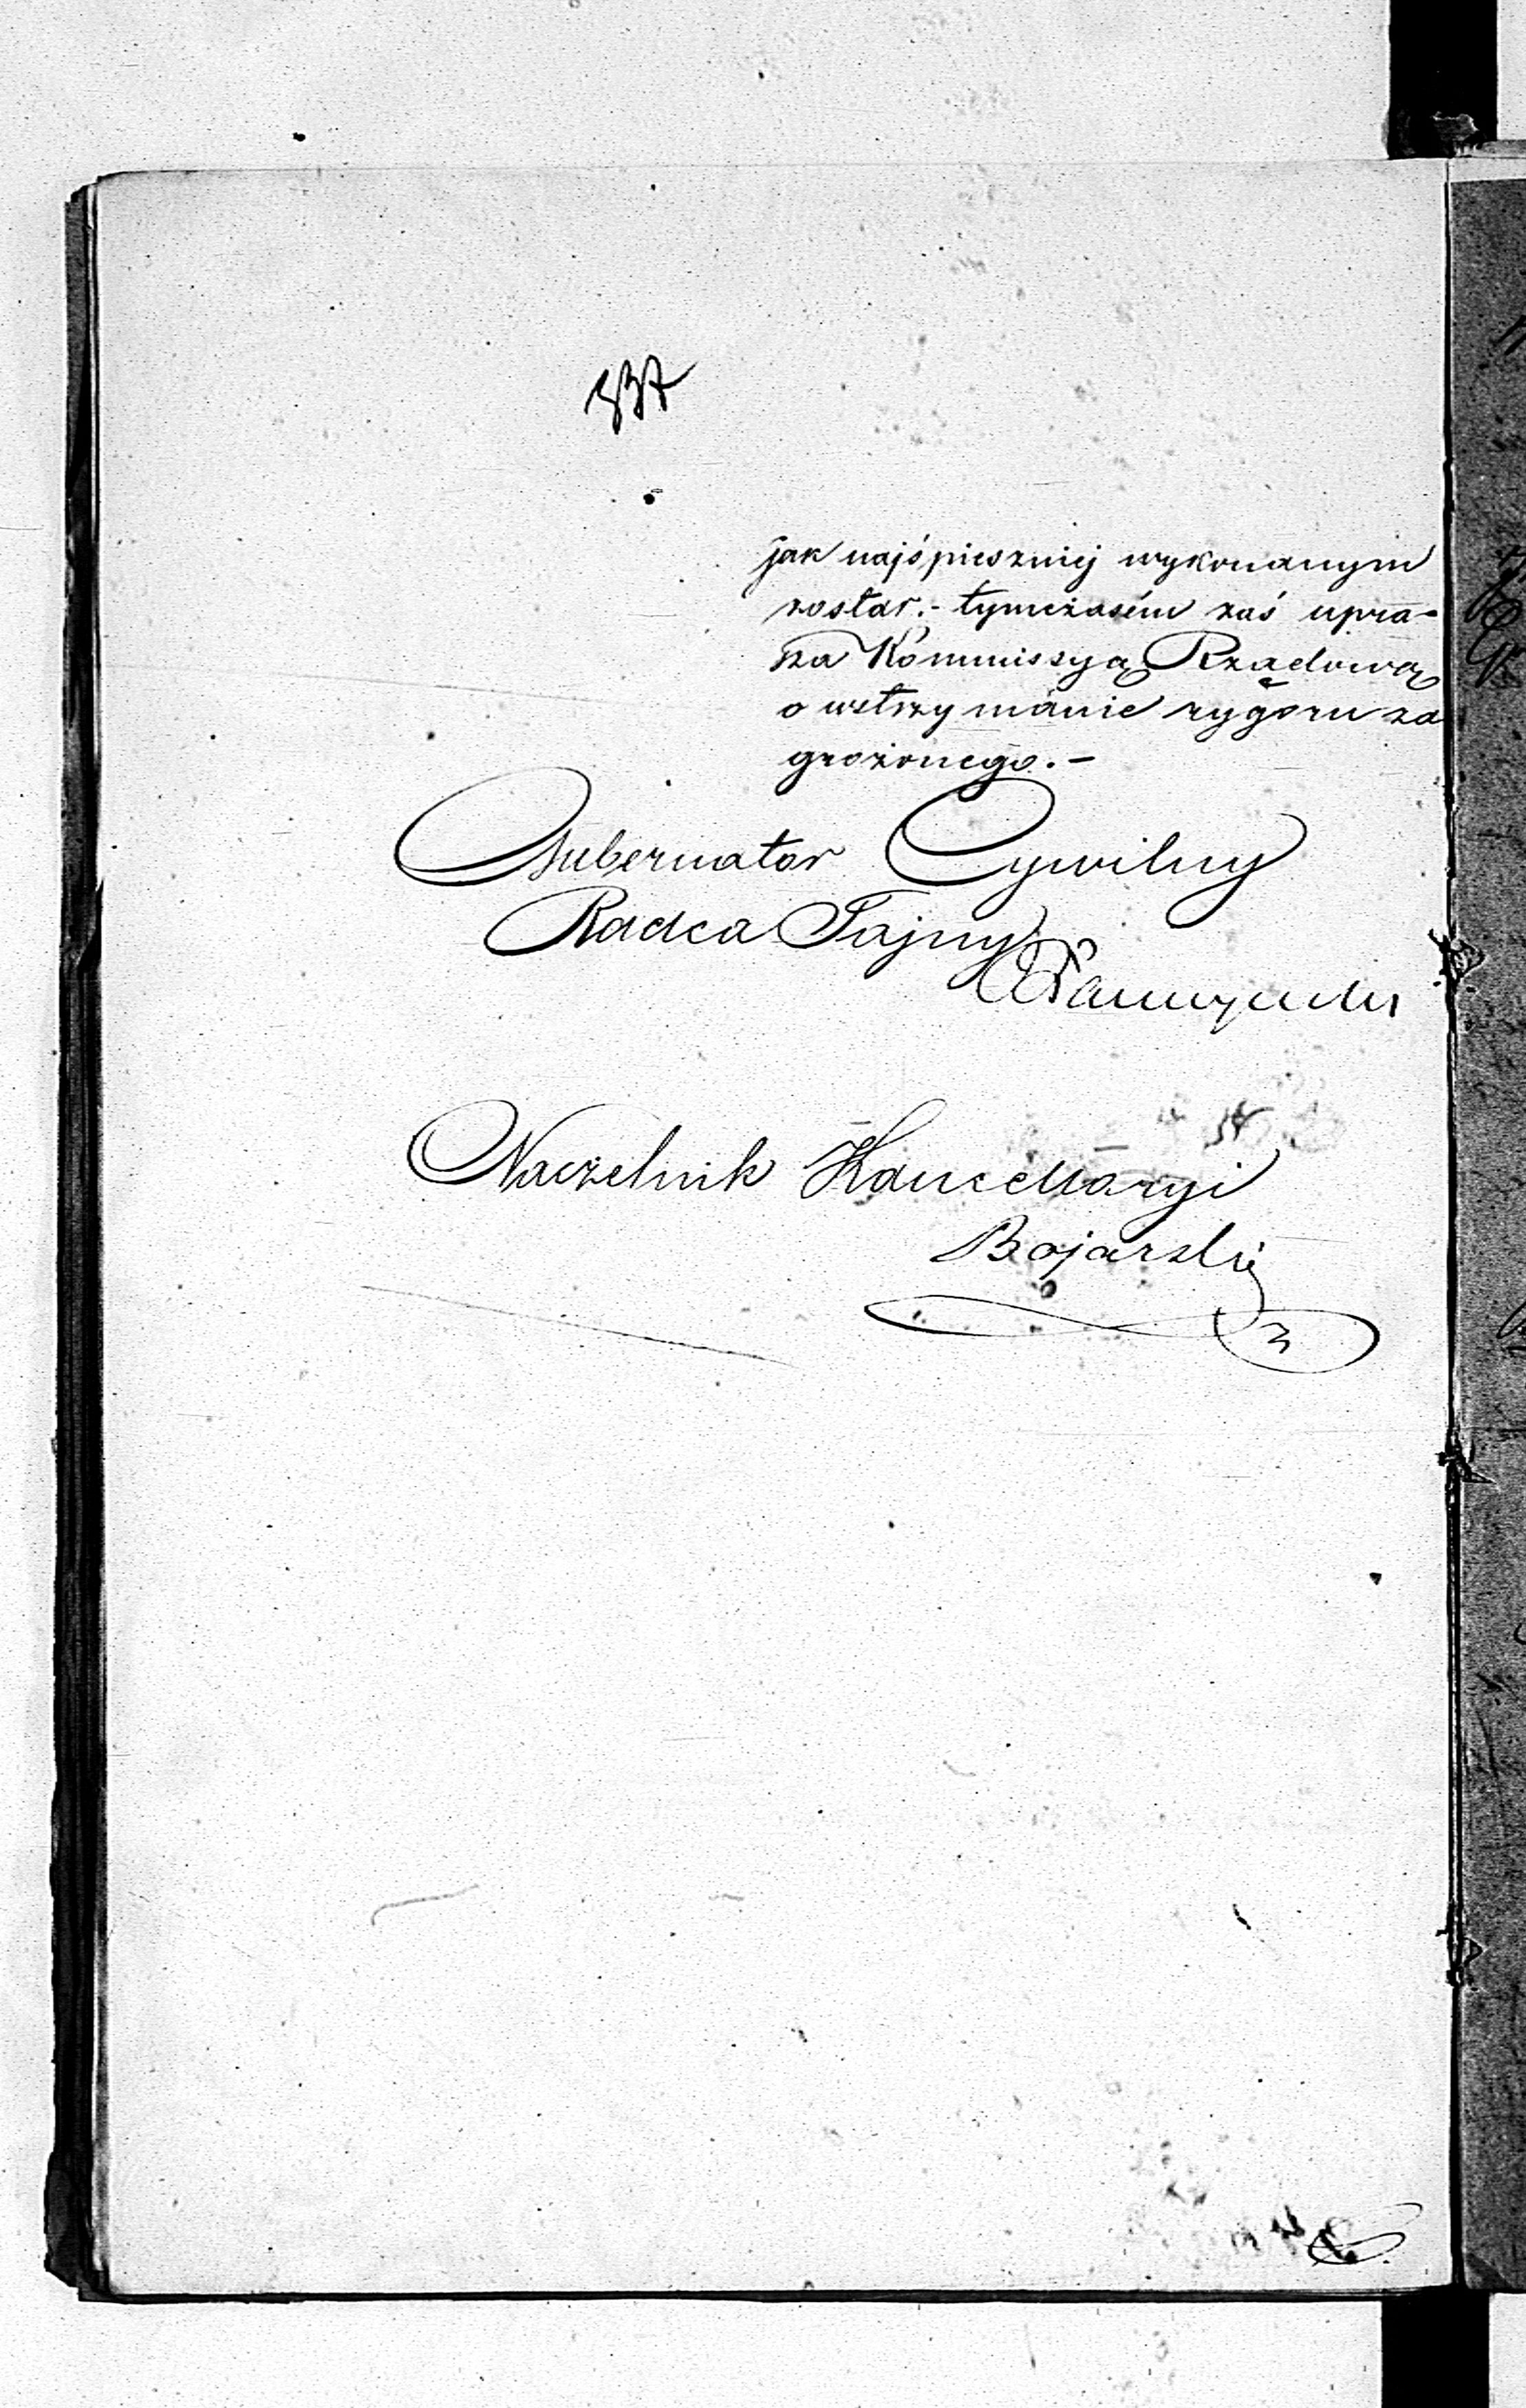 337
jak najśpieszniej wykonanym
został.- tymczasém zaś upra-
sza Kommissyą Rządową
o wstrzymanie rygoru za
grożonego.-
Gubernator Cywilny
Radca Tajny
Naczelnik Kancellaryi
Bojarski